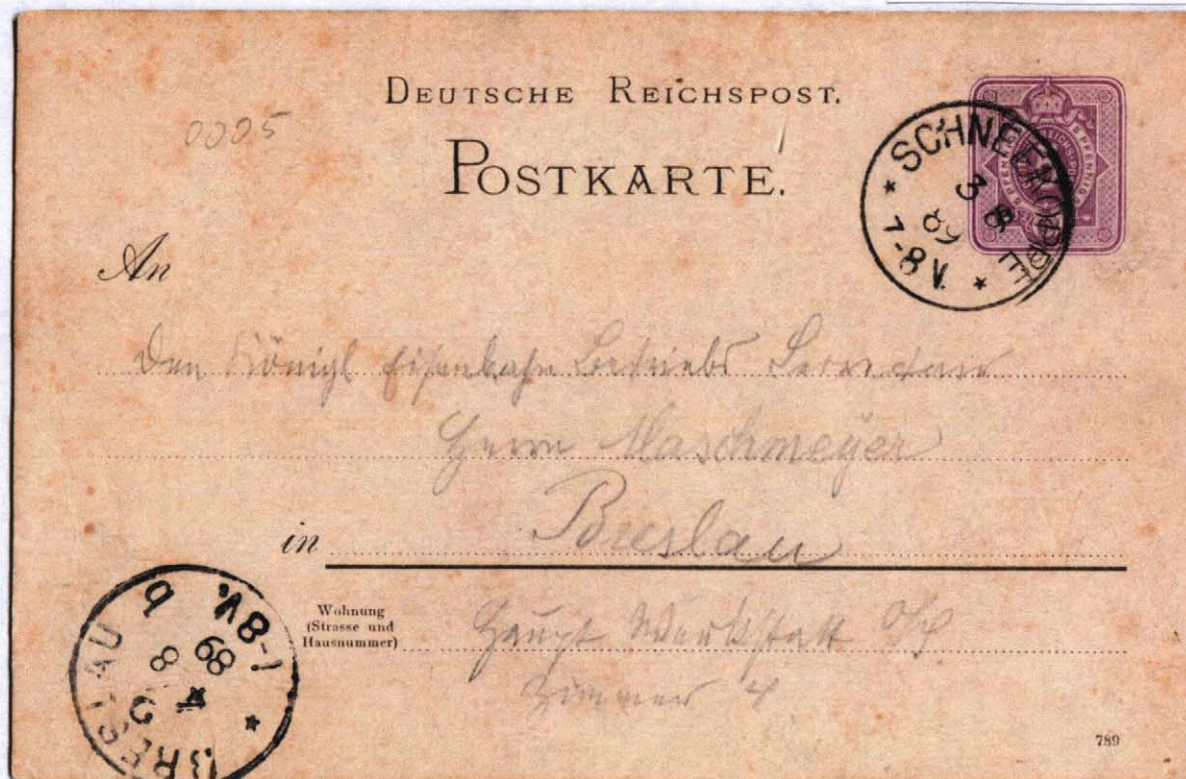 DEUTSCHE REICHSPOST.
0005
POSTKARTE.
SCHNEEKOPPE
3
8
89
7-8V.
An
Den Königl Eisenbahn Betriebs Secretair
Herrn Maschmeyer
in Breslau
Wohnung
(Strasse und
Hausnummer)
Haupt Werkstatt O/S
Zimmer 4
BRESLAU
8
89
-8V.
789